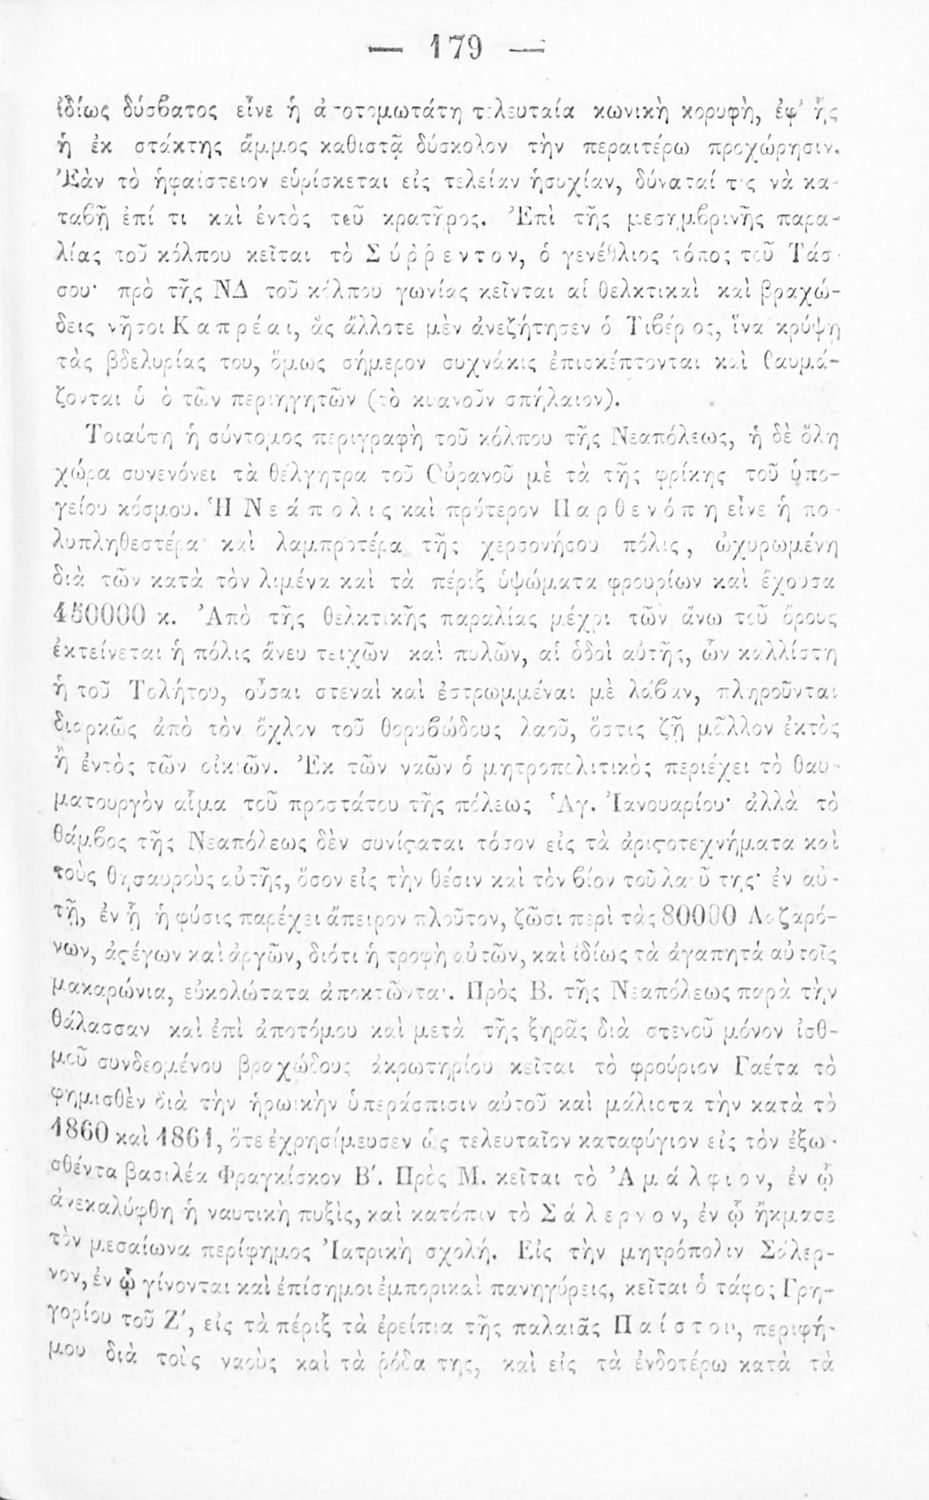 — 179 —
ἰδίως δύσβατος εἶνε ἡ ἀποτομωτάτη τελευταία κωνικὴ κορυφὴ, ἐφ’ ἧς
ἡ ἐκ στάκτης ἄμμος καθιστᾷ δύσκολον τὴν περαιτέρω προχώρησιν.
Ἐὰν τὸ ἡφαίστειον εὑρίσκεται εἰς τελείαν ἡσυχίαν, δύναταί τις νὰ κα-
ταβῇ ἐπί τι καὶ ἐντὸς τοῦ κρατῆρος. Ἐπὶ τῆς μεσημβρινῆς παρα-
λίας τοῦ κόλπου κεῖται τὸ Σύρρεντον, ὁ γενέθλιος τόπος τοῦ Τάσ-
σου· πρὸ τῆς ΝΔ τοῦ κόλπου γωνίας κεῖνται αἱ θελκτικαὶ καὶ βραχώ-
δεις νῆσοι Καπρέαι, ἃς ἄλλοτε μὲν ἀνεζήτησεν ὁ Τιβέριος, ἵνα κρύψῃ
τὰς βδελυρίας του, ὅμως σήμερον συχνάκις ἐπισκέπτονται καὶ θαυμά-
ζονται ὑπὸ τῶν περιηγητῶν (τὸ κυανοῦν σπήλαιον).
Τοιαύτη ἡ σύντομος περιγραφὴ τοῦ κόλπου τῆς Νεαπόλεως, ἡ δὲ ὅλη
χώρα συνενόνει τὰ θέλγητρα τοῦ Οὐρανοῦ μὲ τὰ τῆς φρίκης τοῦ ὑπο-
γείου κόσμου. Ἡ Νεάπολις καὶ πρότερον Παρθενόπη εἶνε ἡ πο-
λυπληθεστέρα καὶ λαμπροτέρα τῆς χερσονήσου πόλις, ὠχυρωμένη
διὰ τῶν κατὰ τὸν λιμένα καὶ τὰ πέριξ ὑψώματα φρουρίων καὶ ἔχουσα
450000 κ. Ἀπὸ τῆς θελκτικῆς παραλίας μέχρι τῶν ἄνω τοῦ ὄρους
ἐκτείνεται ἡ πόλις ἄνευ τειχῶν καὶ πυλῶν, αἱ ὁδοὶ αὐτῆς, ὧν καλλίστη
ἡ τοῦ Τολήτου, οὖσαι στεναὶ καὶ ἐστρωμμέναι μὲ λάβαν, πληροῦνται
διαρκῶς ἀπὸ τὸν ὄχλον τοῦ θορυβώδους λαοῦ, ὅστις ζῇ μᾶλλον ἐκτὸς
ἢ ἐντὸς τῶν οἰκιῶν. Ἐκ τῶν ναῶν ὁ μητροπολιτικὸς περιέχει τὸ θαυ-
ματουργὸν αἷμα τοῦ προστάτου τῆς πόλεως Ἁγ. Ἰανουαρίου· ἀλλὰ τὸ
θάμβος τῆς Νεαπόλεως δὲν συνίσταται τόσον εἰς τὰ ἀριστοτεχνήματα καὶ
τοὺς θησαυροὺς αὐτῆς, ὅσον εἰς τὴν θέσιν καὶ τὸν βίον τοῦ λαοῦ της· ἐν αὐ-
τῇ, ἐν ᾗ ἡ φύσις παρέχει ἄπειρον πλοῦτον, ζῶσι περὶ τὰς 80000 Λαζαρό-
νων, ἀστέγων καὶ ἀργῶν, διότι ἡ τροφὴ αὐτῶν, καὶ ἰδίως τὰ ἀγαπητὰ αὐτοῖς
μακαρώνια, εὐκολώτατα ἀποκτῶνται. Πρὸς Β. τῆς Νεαπόλεως παρὰ τὴν
θάλασσαν καὶ ἐπὶ ἀποτόμου καὶ μετὰ τῆς ξηρᾶς διὰ στενοῦ μόνον ἰσθ-
μοῦ συνδεομένου βραχώδους ἀκρωτηρίου κεῖται τὸ φρούριον Γαέτα τὸ
φημισθὲν διὰ τὴν ἡρωικὴν ὑπεράσπισιν αὐτοῦ καὶ μάλιστα τὴν κατὰ τὸ
1860 καὶ 1861, ὅτε ἐχρησίμευσεν ὡς τελευταῖον καταφύγιον εἰς τὸν ἐξω-
σθέντα βασιλέα Φραγκίσκον Β΄. Πρὸς Μ. κεῖται τὸ Ἀμάλφιον, ἐν ᾧ
ἀνεκαλύφθη ἡ ναυτικὴ πυξὶς, καὶ κατόπιν τὸ Σάλερνον, ἐν ᾧ ἤκμασε
τὸν μεσαίωνα περίφημος Ἰατρικὴ σχολή. Εἰς τὴν μητρόπολιν Σάλερ-
νον, ἐν ᾧ γίνονται καὶ ἐπίσημοι ἐμπορικαὶ πανηγύρεις, κεῖται ὁ τάφος Γρη-
γορίου τοῦ Ζ΄, εἰς τὰ πέριξ τὰ ἐρείπια τῆς παλαιᾶς Παίστου, περιφή-
μου διὰ τοὺς ναοὺς καὶ τὰ ῥόδα της, καὶ εἰς τὰ ἐνδοτέρω κατὰ τὰ